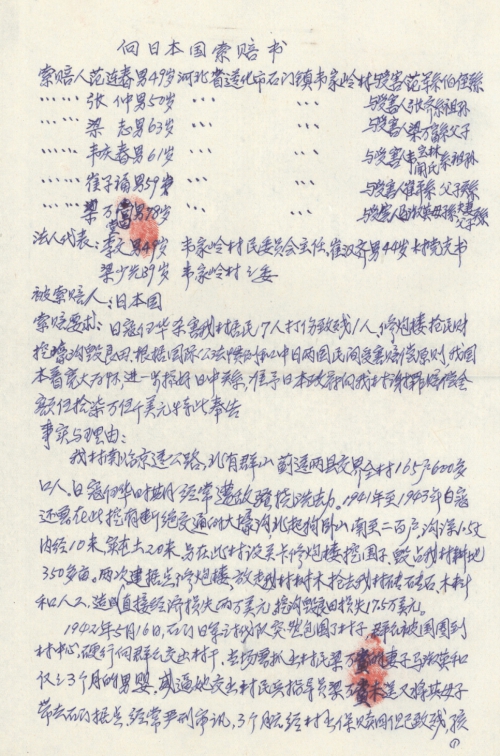 向日本国索赔书
索赔人范连春男49岁河北省遵化市石门镇韦家岭村与受害范羊系伯侄孙
…… 张仲男50岁 〃 〃 与受害人张齐系祖孙
…… 梁志男63岁 〃 〃 与受害人梁万富系父子
…… 韦庆春男61岁 〃 〃 与受害人韦宝林闻氏系祖孙
…… 崔子诵男59岁 〃 〃 与受害人崔平系父子孙
…… 梁万 男78岁 〃 〃 与受害人冯淑英母孩系夫妻父子系
法人代表:李文男49岁 韦家岭村民委员会主任,崔汉齐男44岁村党支书
梁少兴39岁 韦家岭村支委
被索赔人:日本国
索赔要求:日寇侵华杀害我村居民17人打伤致残1人,修炮楼抢民财
挖壕沟毁良田,根据国际公法惯例和中日两国民间受害赔偿原则,我国
本着宽大为怀,进一步搞好日中关系,准予日本政府向我村谢罪赔偿金
额伍拾柒万伍仟美元特此奉告
事实与理由:
我村南临京遵公路,北有群山蓟遵两县交界全村165户600多
口人。日寇侵华时期经常遭敌骚扰洗劫。1941年至1943年日寇
还要在此挖有断绝交通的大壕沟,北起狗卧山南至二百户,沟深1.5丈
内径10米,第本土20米,另在此村设关卡修炮楼挖围子,毁占我村耕地
350多亩。两次建据点修炮楼,放走我村树木抢去我村砖碴石,木料
和人工,造成直接经济损失两万美元,挖沟毁良田损失17.5万美元。
1942年5月16日,石门日军讨伐队突然包围了村子,群众被围圈到
村中心,硬行向群众交出村干,当场署抓出村民梁万 的妻子马淑英和
仅之3个月的男婴,威逼她交出村民兵指导员梁万 未遂又将其母子
带去石门据点,经常严刑审讯,3个月后经村出保赎回但已致残,孩
①